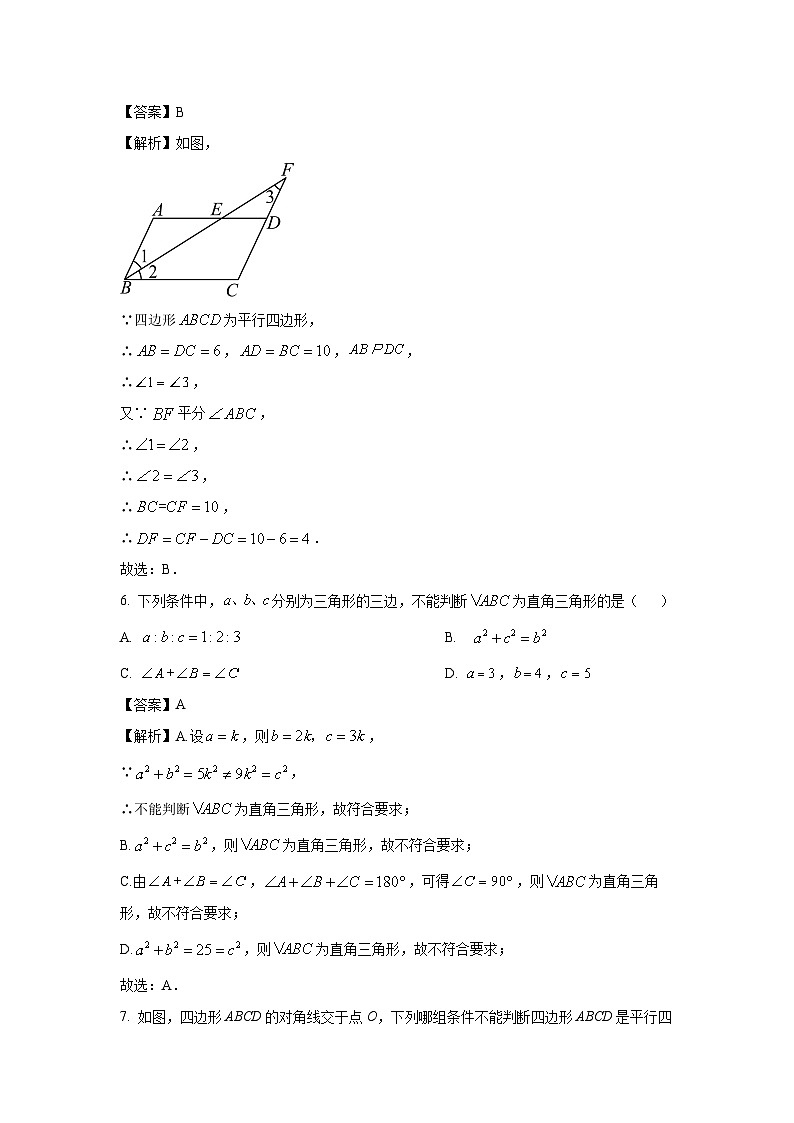 【答案】B
【解析】如图，
F
3
A
E
D
1
2
B
C
∵四边形ABCD为平行四边形，
∴AB=DC=6，AD=BC=10，AB∥DC，
∴∠1=∠3，
又∵BF平分∠ABC，
∴∠1=∠2，
∴∠2=∠3，
∴BC=CF=10，
∴DF=CF−DC=10−6=4．
故选：B．
6. 下列条件中，a、b、c分别为三角形的三边，不能判断△ABC为直角三角形的是（ ）
A. a:b:c=1:2:3 B. a²+c²=b²
C. ∠A+∠B=∠C D. a=3，b=4，c=5
【答案】A
【解析】A.设a=k，则b=2k，c=3k，
∵a²+b²=5k²≠9k²=c²，
∴不能判断△ABC为直角三角形，故符合要求；
B.a²+c²=b²，则△ABC为直角三角形，故不符合要求；
C.由∠A+∠B=∠C，∠A+∠B+∠C=180°，可得∠C=90°，则△ABC为直角三角
形，故不符合要求；
D.a²+b²=25=c²，则△ABC为直角三角形，故不符合要求；
故选：A．
7. 如图，四边形ABCD的对角线交于点O，下列哪组条件不能判断四边形ABCD是平行四